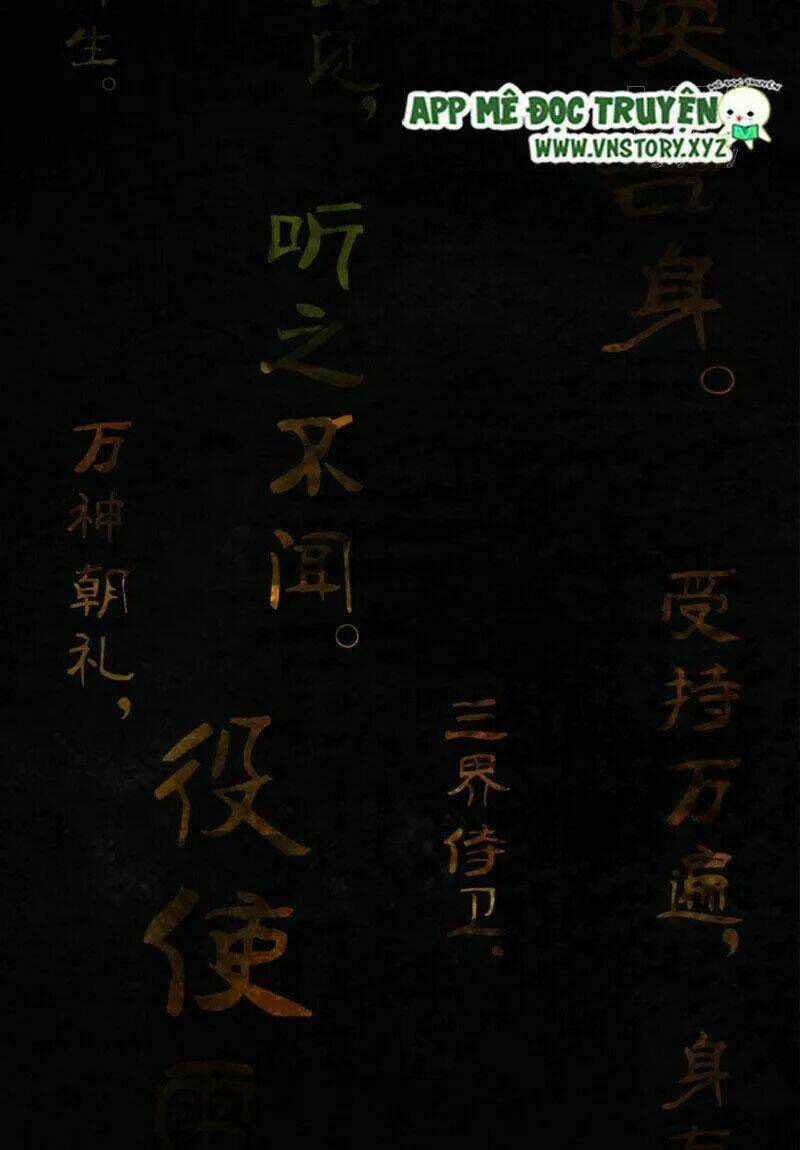 APP MÊ ĐỌC TRUYỆN
MÊ ĐỌC TRUYỆN
WWW.VNSTORY.XYZ
身。
受持万遍,
身
三界侍卫,
听之不闻。
役使
万神朝礼,
生。